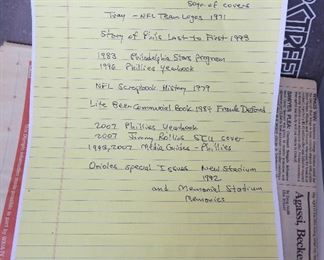 50yr of covers
Tray - NFL Team Logos 1971
Story of Phils Last to First - 1993
1983 Philadelphia Stars Program
1996 Phillies Yearbook
NFL Scrapbook History 1979
Lite Beer Commercial Book 1984 Frank Deford
2007 Phillies Yearbook
2007 Jimmy Rollins SILL cover
1993, 2007 Media Guides - Phillies
Orioles Special Issues New Stadium
1992
and Memorial Stadium
Memories
Agassi, Becke